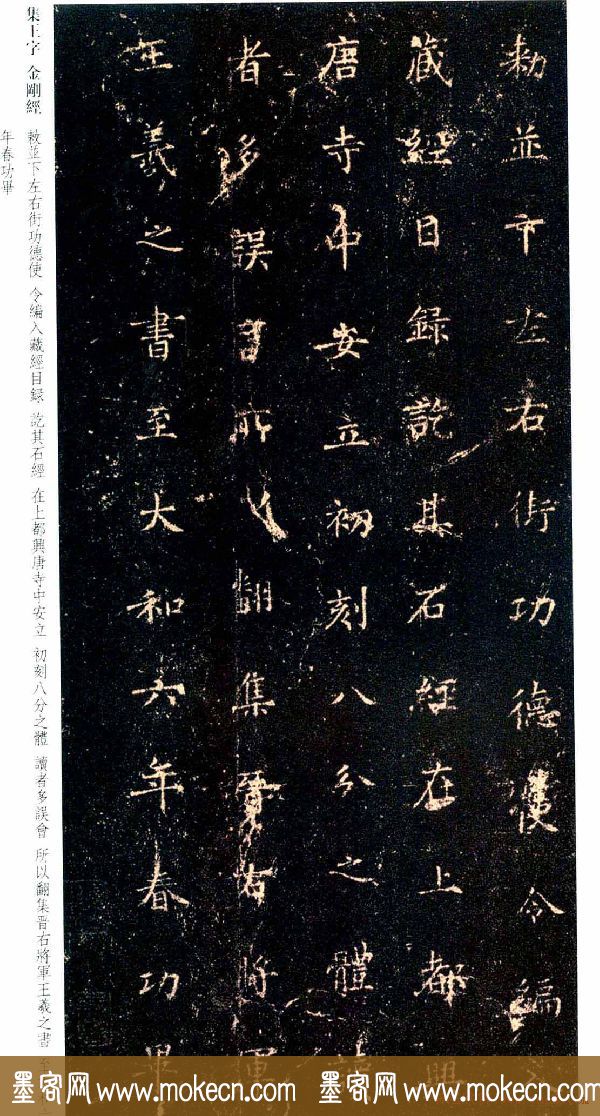 勅並下左右街功德使令編入
藏經目録訖其石經在上都興
唐寺中安立初刻八分之體讀
者多誤會所以翻集晉右將軍
王羲之書至大和六年春功畢
集王字 金剛經 敕並下左右街功德使 令編入藏經目録 訖其石經 在上都興唐寺中安立 初刻八分之體 讀者多誤會 所以翻集晋右將軍王羲之書
年春功畢
墨客网 www.mokecn.com 墨客网 www.mokecn.com